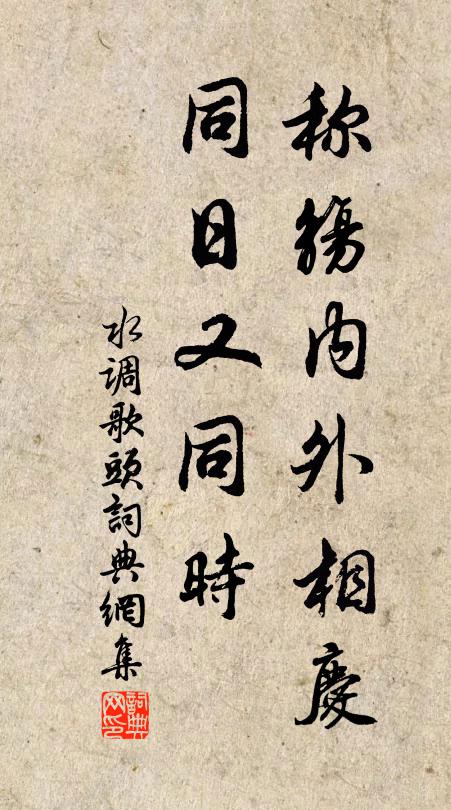 称觞内外相慶
同日又同時
水调歌頭詞典網集
詞典网印